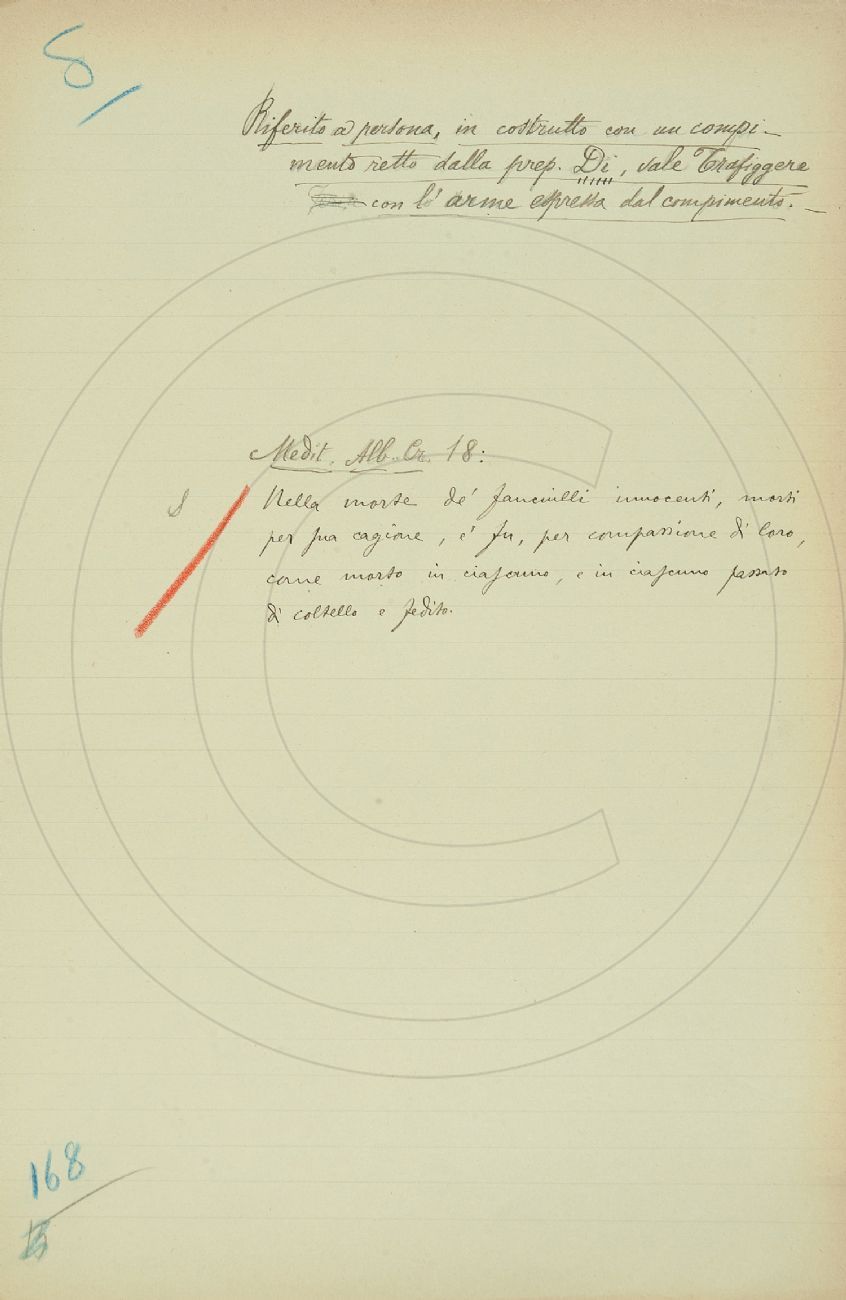 Riferito a persona, in costrutto con un compi-
mento retto dalla prep. Di, vale Trafiggere
con l'arme espressa dal compimento. _
Medit. Alb. Cr. 18:
S Nella morte de' fanciulli innocenti, morti
per sua cagione, e' fu, per compassione di loro,
come morto in ciascuno, e in ciascuno passato
di coltello e fedito.
168